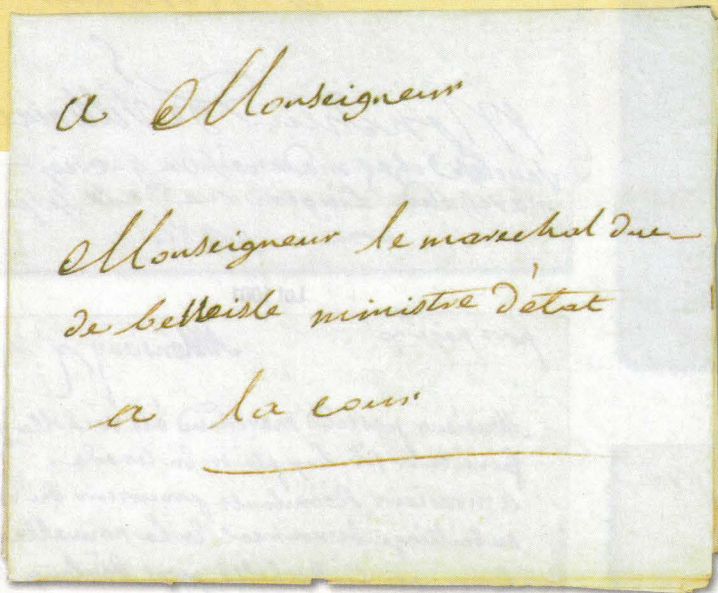 a Monseigneur
Monseigneur le marechal duc
de belleisle ministre d'état
a la cour